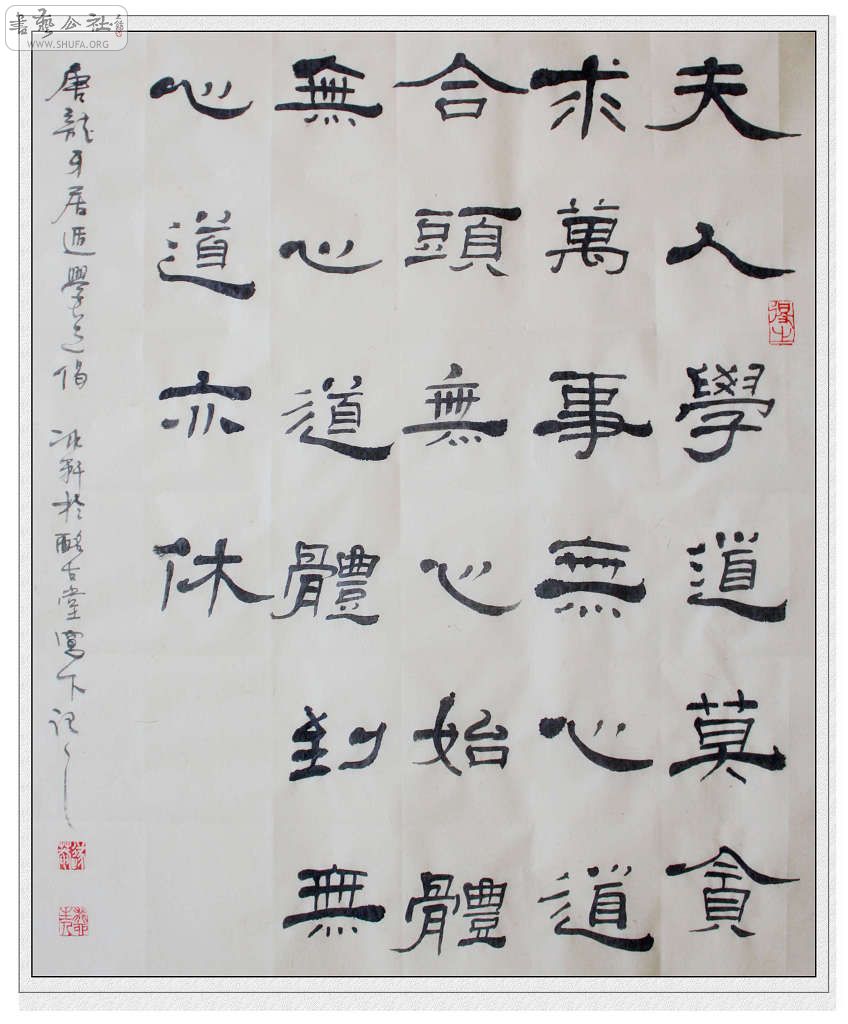 夫人學道莫貪
求萬事無心道
合頭無心始體
無心道體到無
心道亦休
唐龍牙居遁學道偈 於酩古堂寫下記
書藝公社
WWW.SHUFA.ORG